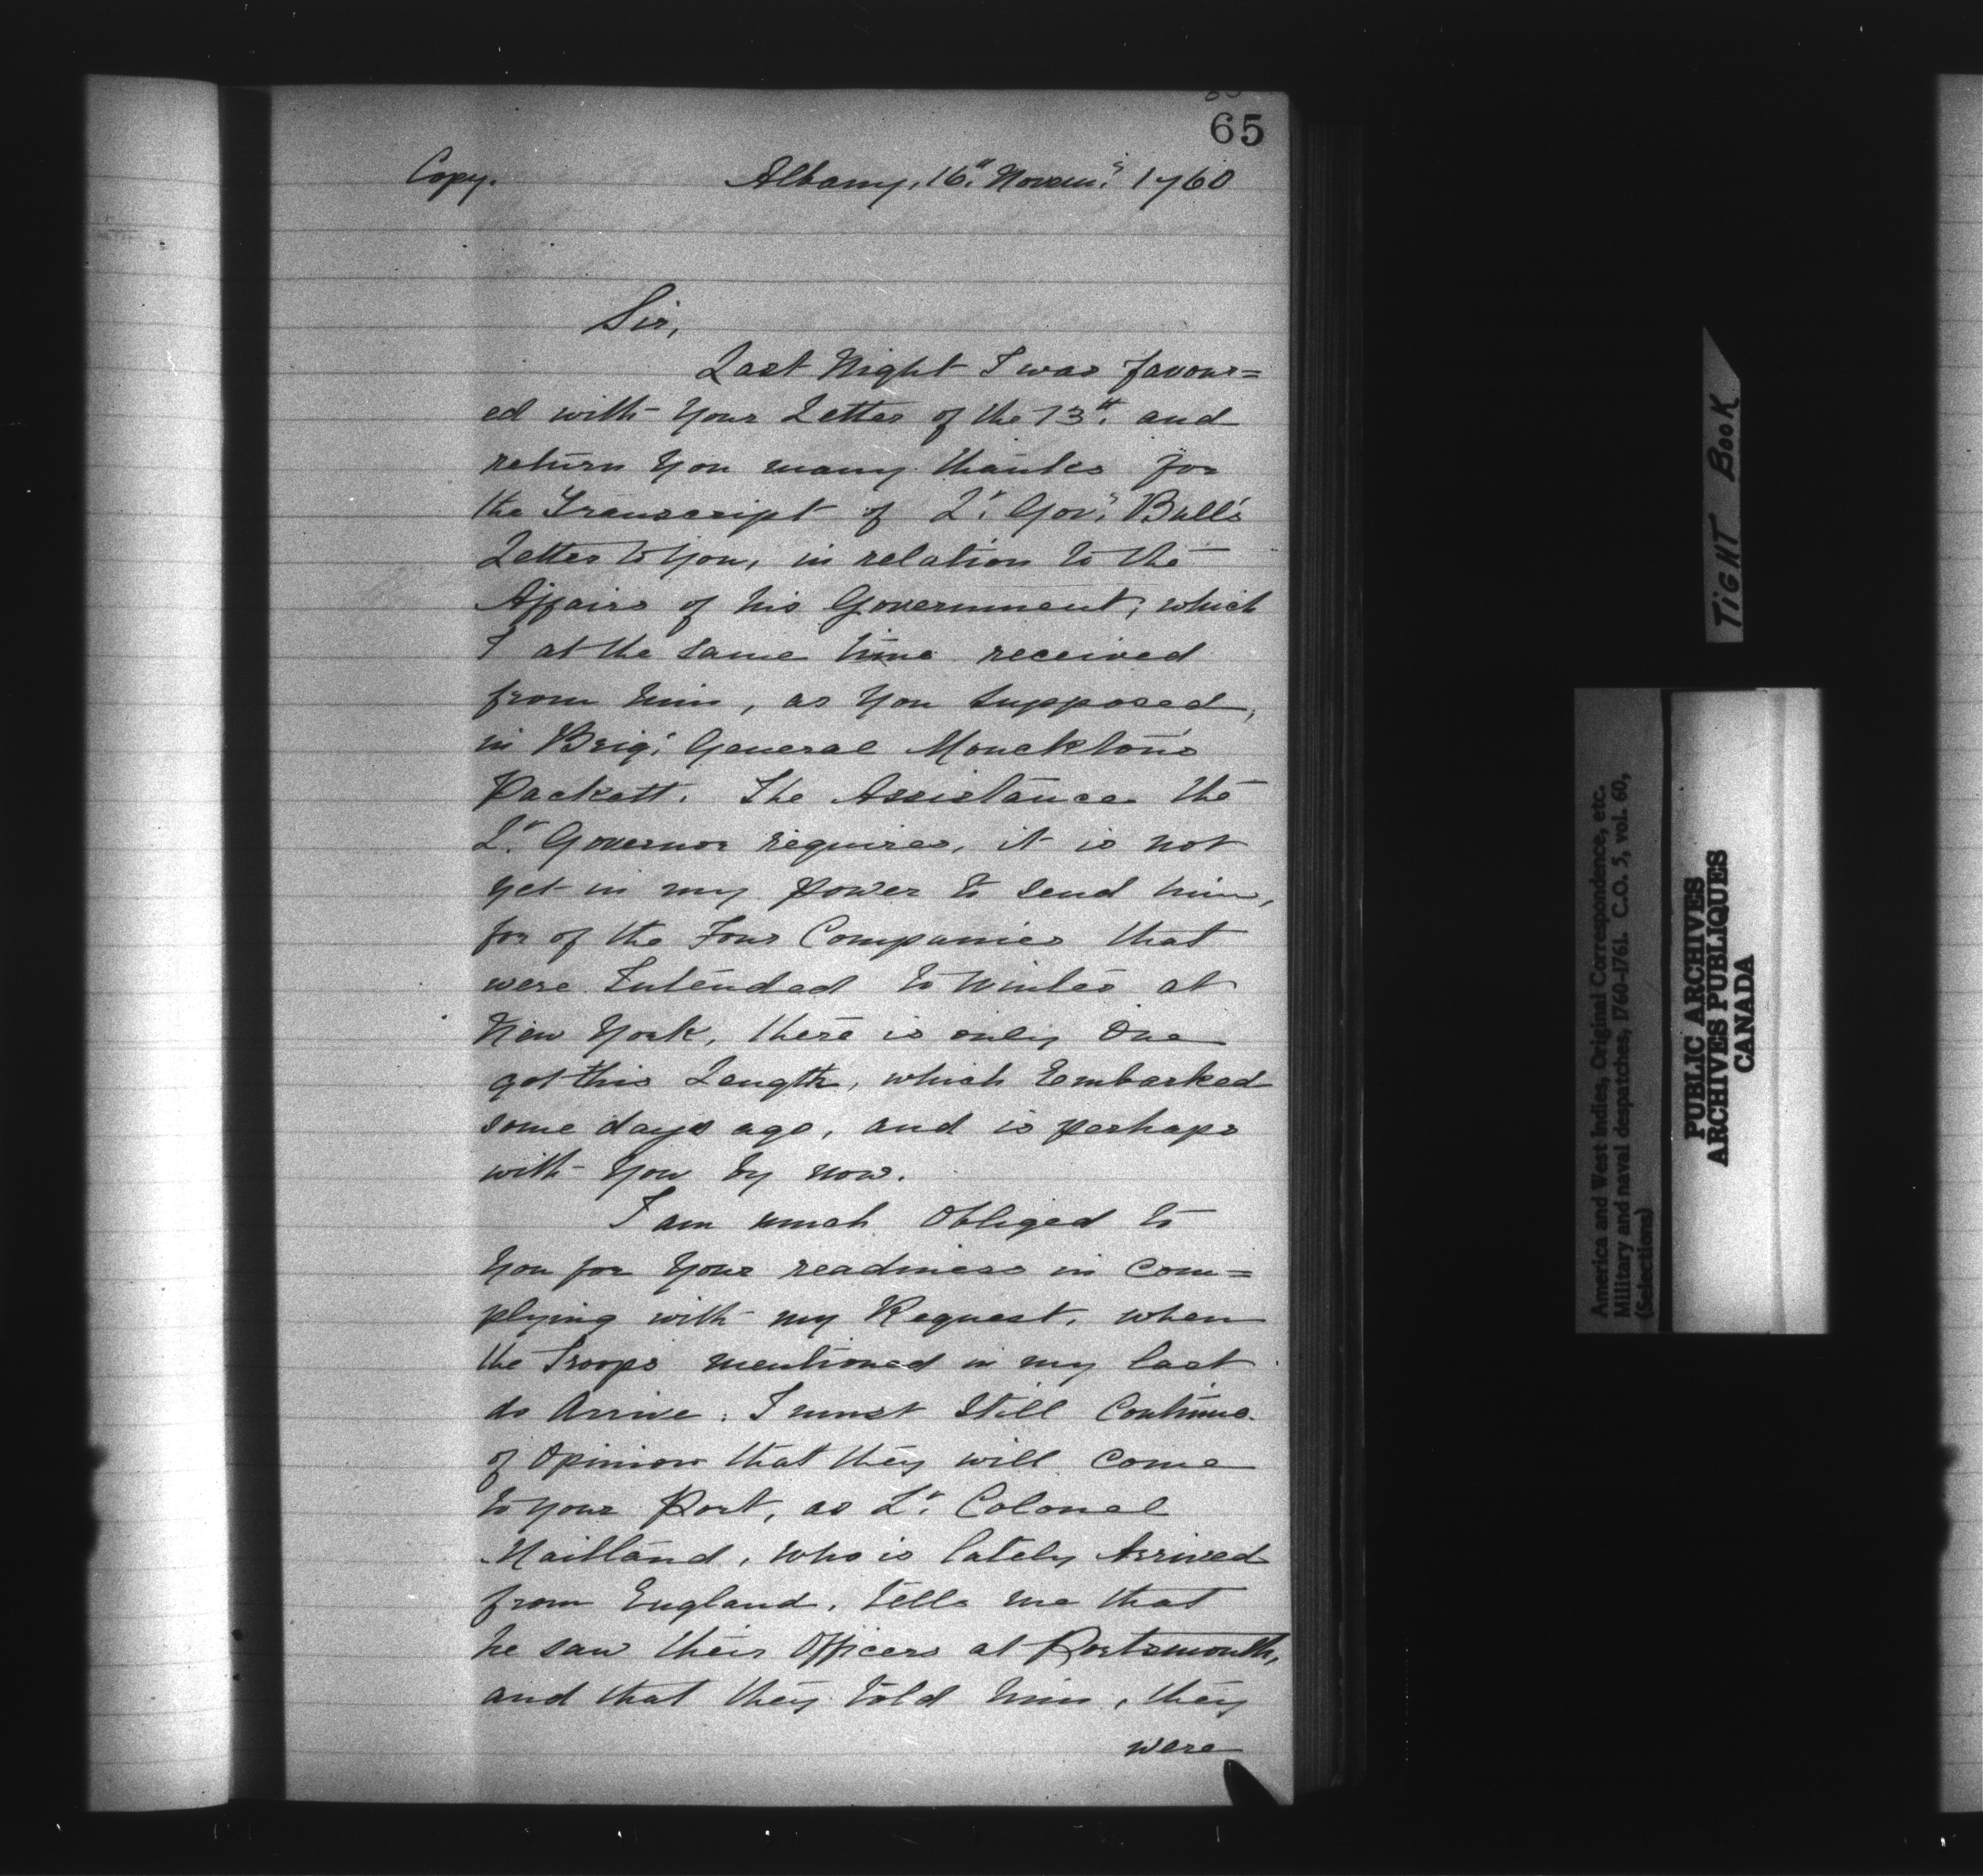 65
Copy. Albany, 16." Novem.r 1760
Sir,
Last Night I was favour=
ed with Your Letter of the 13th. and
return You many thanks for
the Transcript of Lt. Govr. Bull's
Letter to You, in relation to the
Affairs of his Government, which
I at the same time received
from him, as You Supposed,
in Brigr. General Monckton's
Packett. The Assistance the
Lt. Governor requires, it is not
yet in my Power to Send him,
for of the Four Companies that
were Intended to Winter at
New York, there is only One
got this Length, which Embarked
some days ago, and is perhaps
with You by now.
I am much Obliged to
You for Your readiness in Com=
plying with my Request, when
the Troops mentioned in my last
do Arrive; I must Still Continue
of Opinion that they will come
to your Port, as Lt. Colonel
Maitland, who is lately Arrived
from England, tells me that
he saw their Officers at Portsmouth,
and that they told him, they
were
TIGHT BOOK
America and West Indies, Original Correspondence, etc.
Military and naval despatches, 1760-1761. C.O. 5, vol. 60,
(Selections)
PUBLIC ARCHIVES
ARCHIVES PUBLIQUES
CANADA